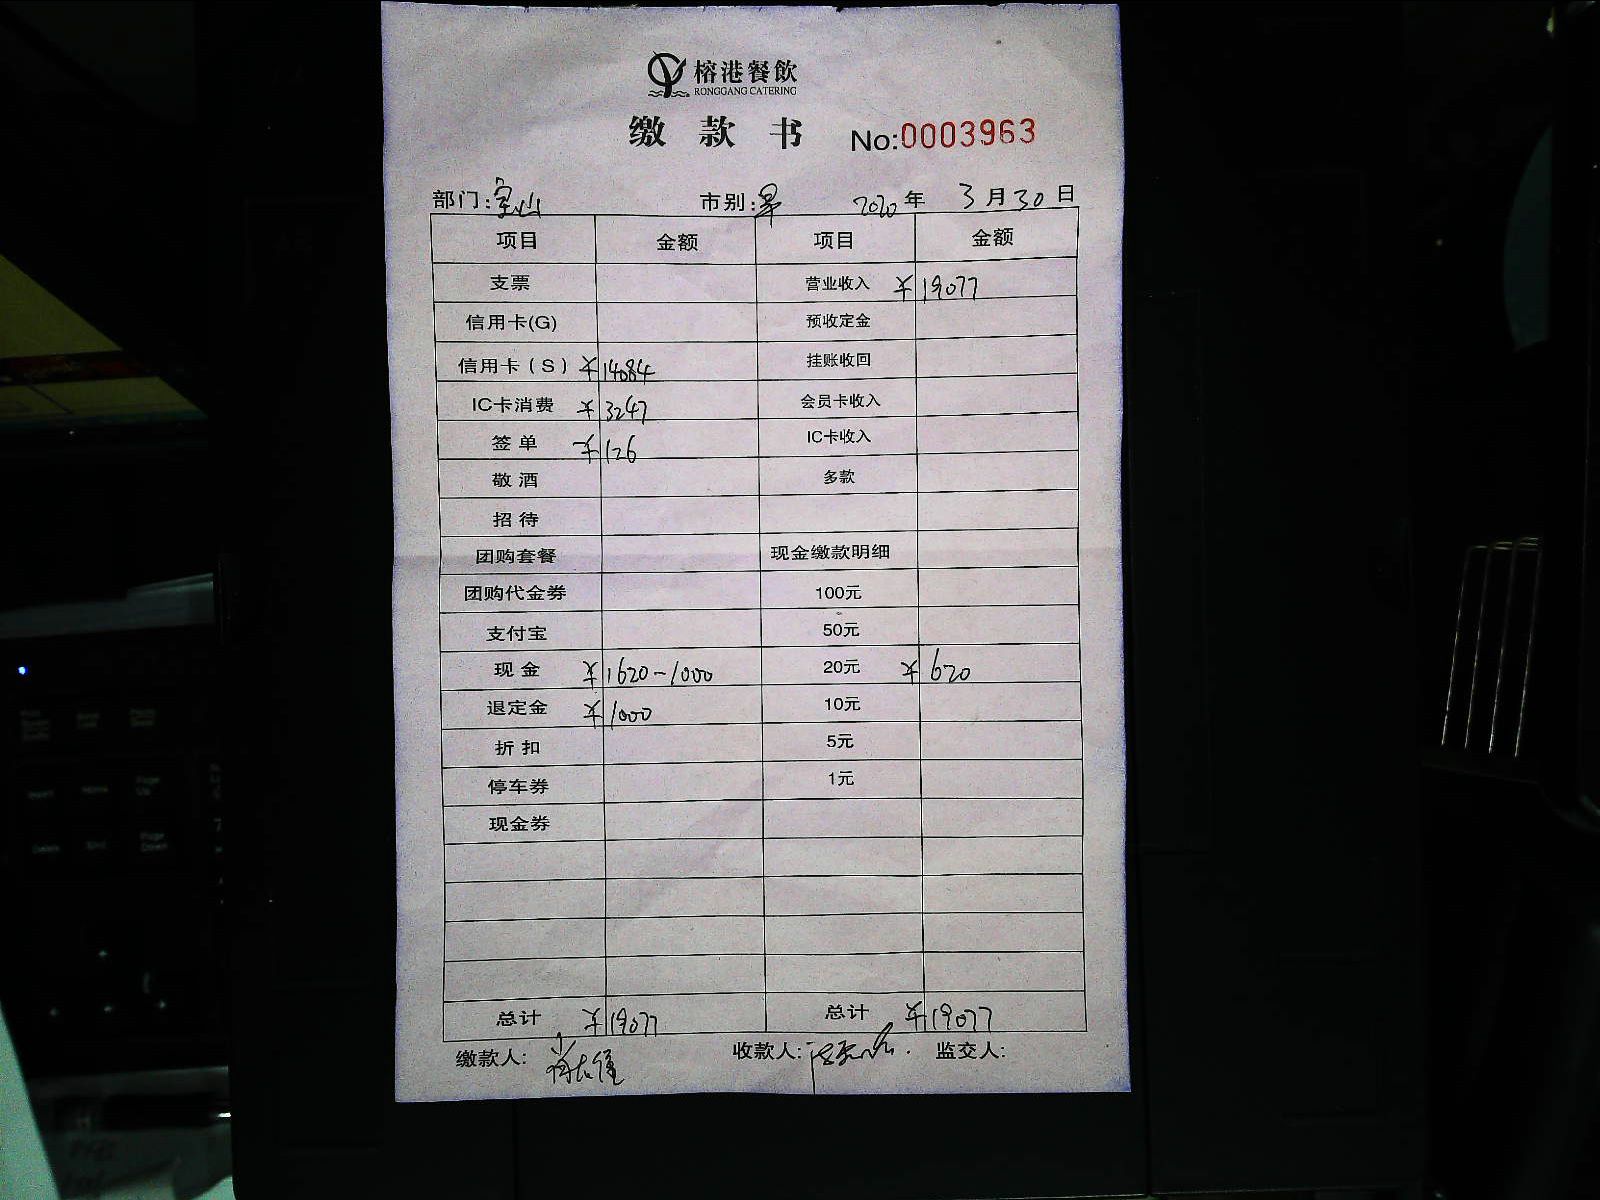 榕港餐飲
RONGGANG CATERING
缴款书 No:0003963
部门:宝山 市别:早 2020年 3月30日
项目 金额 项目 金额
支票 营业收入 ¥19077
信用卡(G) 预收定金
信用卡(S) ¥14084 挂账收回
IC卡消费 ¥3247 会员卡收入
签单 ¥126 IC卡收入
敬酒 多款
招待
团购套餐 现金缴款明细
团购代金券 100元
支付宝 50元
现金 ¥1620-1000 20元 ¥620
退定金 ¥1000 10元
折扣 5元
停车券 1元
现金券
总计 ¥19077 总计 ¥19077
缴款人: 收款人: 监交人: